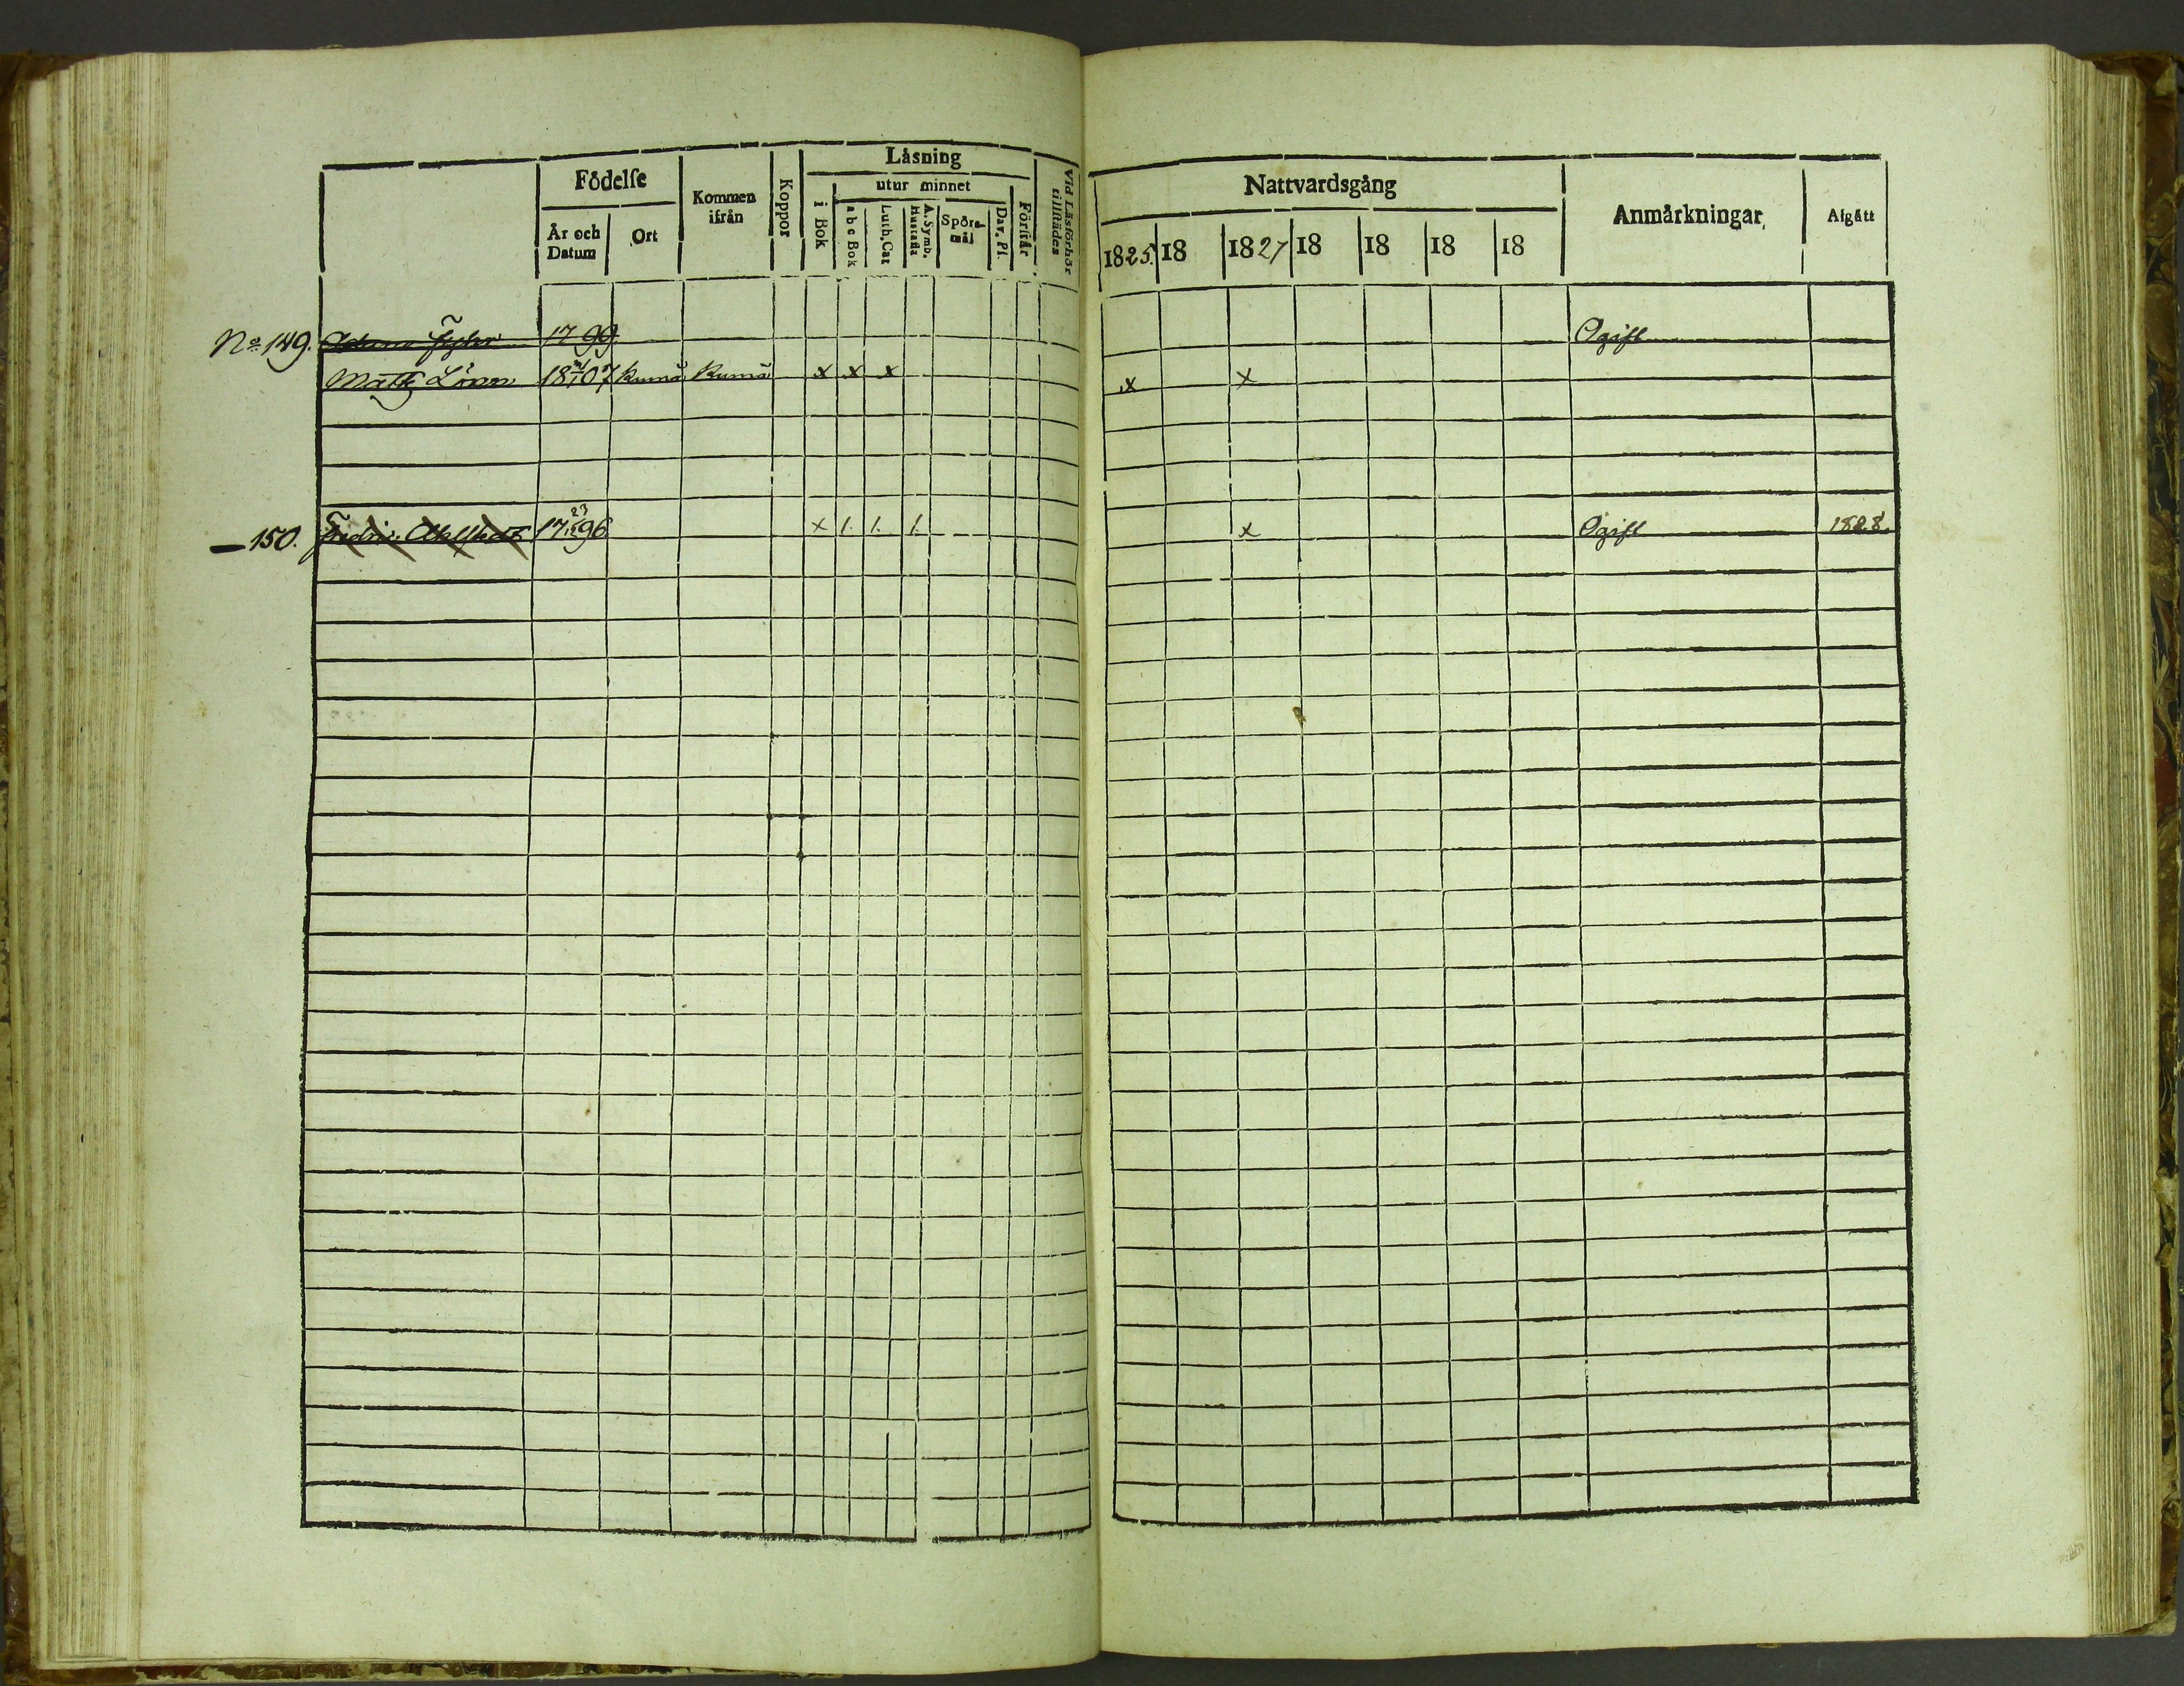 Födelse
Kommen ifrån
Koppor
Läsning
utur minnet
År och Datum
Ort
i Bok
a b c Bok
Luth. Cat
A. Symb. Hustafla
Spörsmål
Dav. Ps.
Förstår
Vid Läsförhör tillstädes
Nattvardsgång
Anmärkningar
Afgått
1825. 18 1827 18 18 18 18
No 149. 1799 Ogift
Matts Lönn 18 07 Kumå Kumå x x x x x
— 150. Fredric Ahlstedt 17 23 96 x 1. 1. 1. x Ogift 1828.